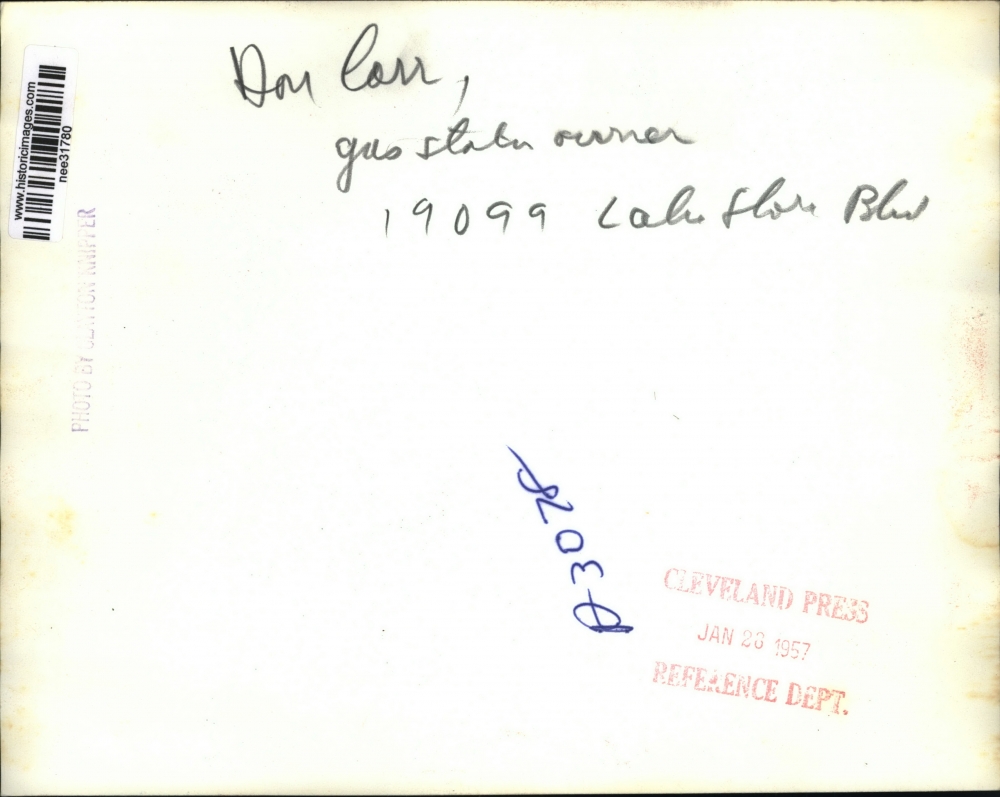 Don Carr,
gas station owner
19099 Lake Shore Blvd
www.historicimages.com
nee31780
PHOTO BY CLAYTON KNIPPER
CLEVELAND PRESS
JAN 26 1957
REFERENCE DEPT.